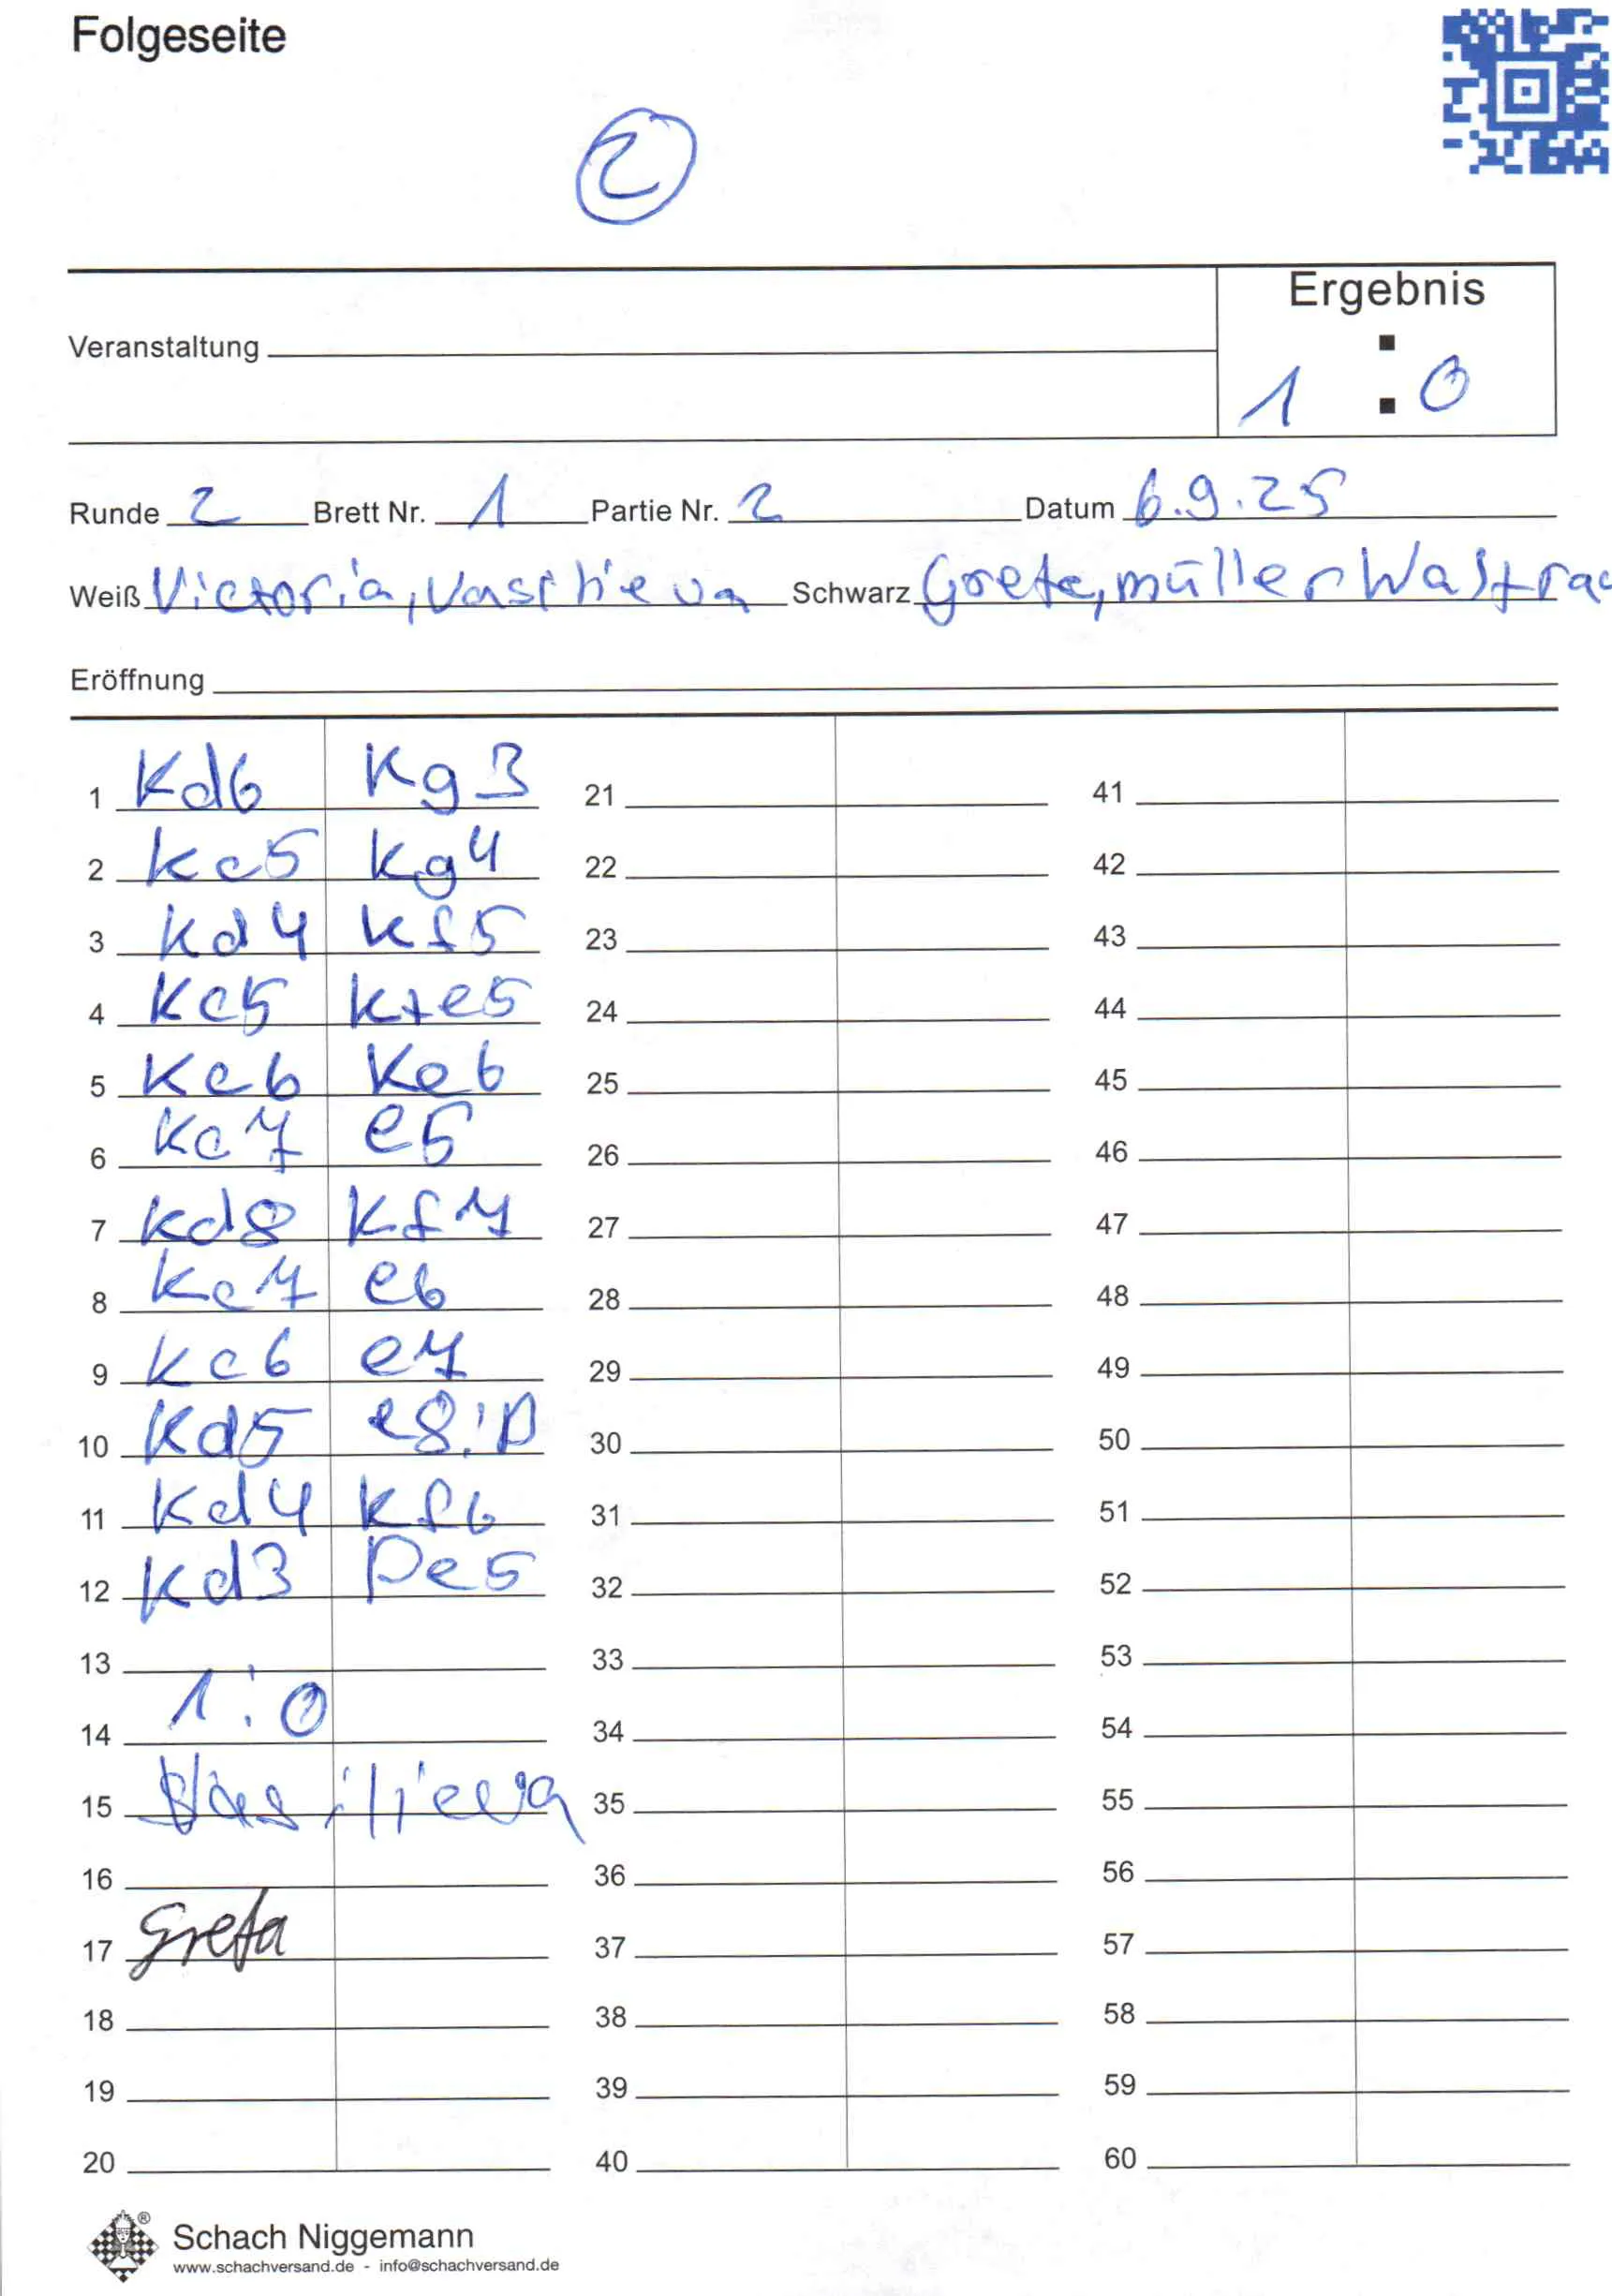 Folgeseite
2
Ergebnis
Veranstaltung
1 : 0
Runde 2 Brett Nr. 1 Partie Nr. 2 Datum 6.9.25
Weiß Victoria, Schwarz Greta, müller
Eröffnung
1 Kd6 Kg3 21 41
2 Kc5 Kg4 22 42
3 Kd4 Kf5 23 43
4 Kc5 Kxe5 24 44
5 Kc6 Ke6 25 45
6 Kc7 e5 26 46
7 Kd8 Kf7 27 47
8 Kc7 e6 28 48
9 Kc6 e7 29 49
10 Kd5 e8:D 30 50
11 Kd4 Kf6 31 51
12 Kd3 De5 32 52
13 33 53
14 1:0 34 54
15 Vasilieva 35 55
16 36 56
17 Greta 37 57
18 38 58
19 39 59
20 40 60
® Schach Niggemann
www.schachversand.de - info@schachversand.de